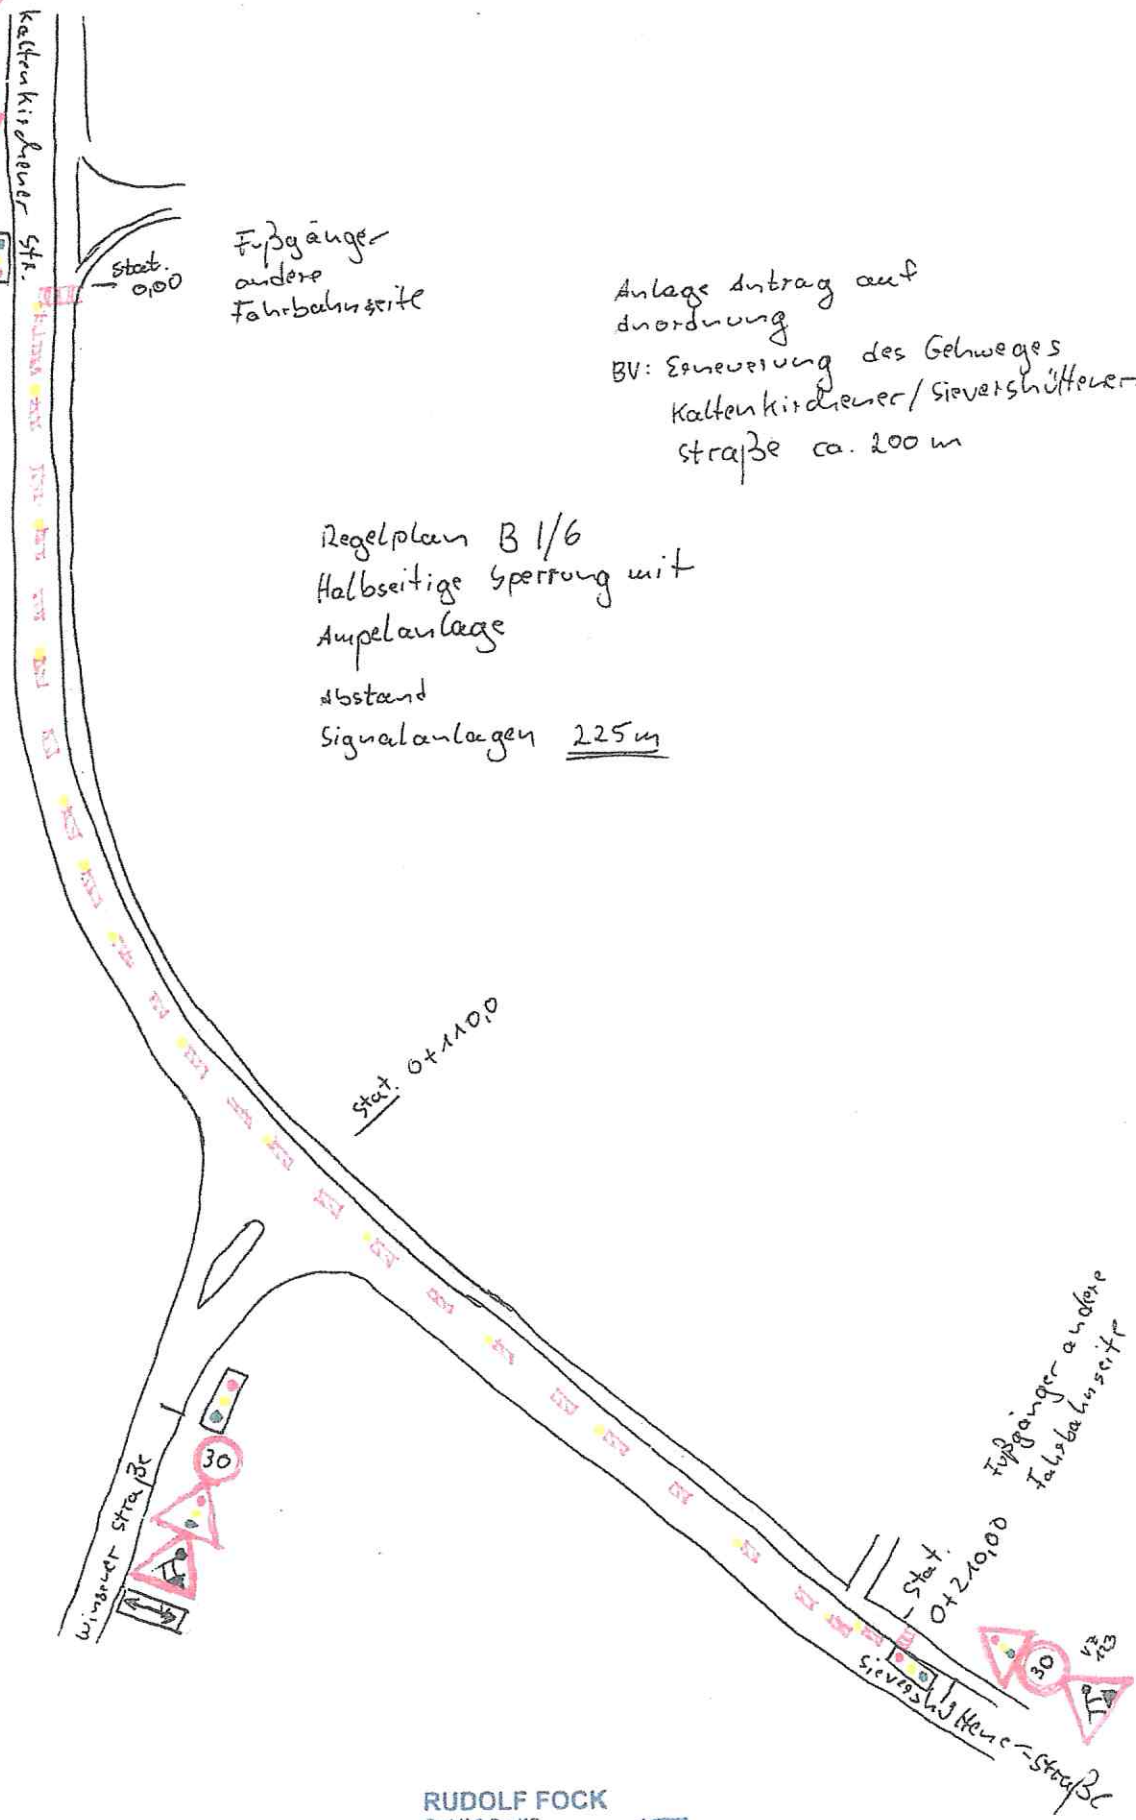 Kaltenkirchener Str.
Stat.
0,00
Fußgänger
andere
Fahrbahnseite
Anlage Antrag auf
Anordnung
BV: Erneuerung des Gehweges
Kaltenkirchener/Sievershüttener-
straße ca. 200 m
Regelplan B 1/6
Halbseitige Sperrung mit
Ampelanlage
Abstand
Signalanlagen 225 m
Stat. 0+110,0
30
Winsener Straße
Fußgänger andere
Fahrbahnseite
Stat.
0+210,00
30
VZ
123
Sievershüttener-Straße
RUDOLF FOCK